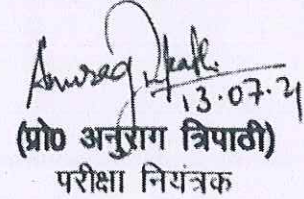 Anurag Tripathi
13.07.21
(प्रो० अनुराग त्रिपाठी)
परीक्षा नियंत्रक